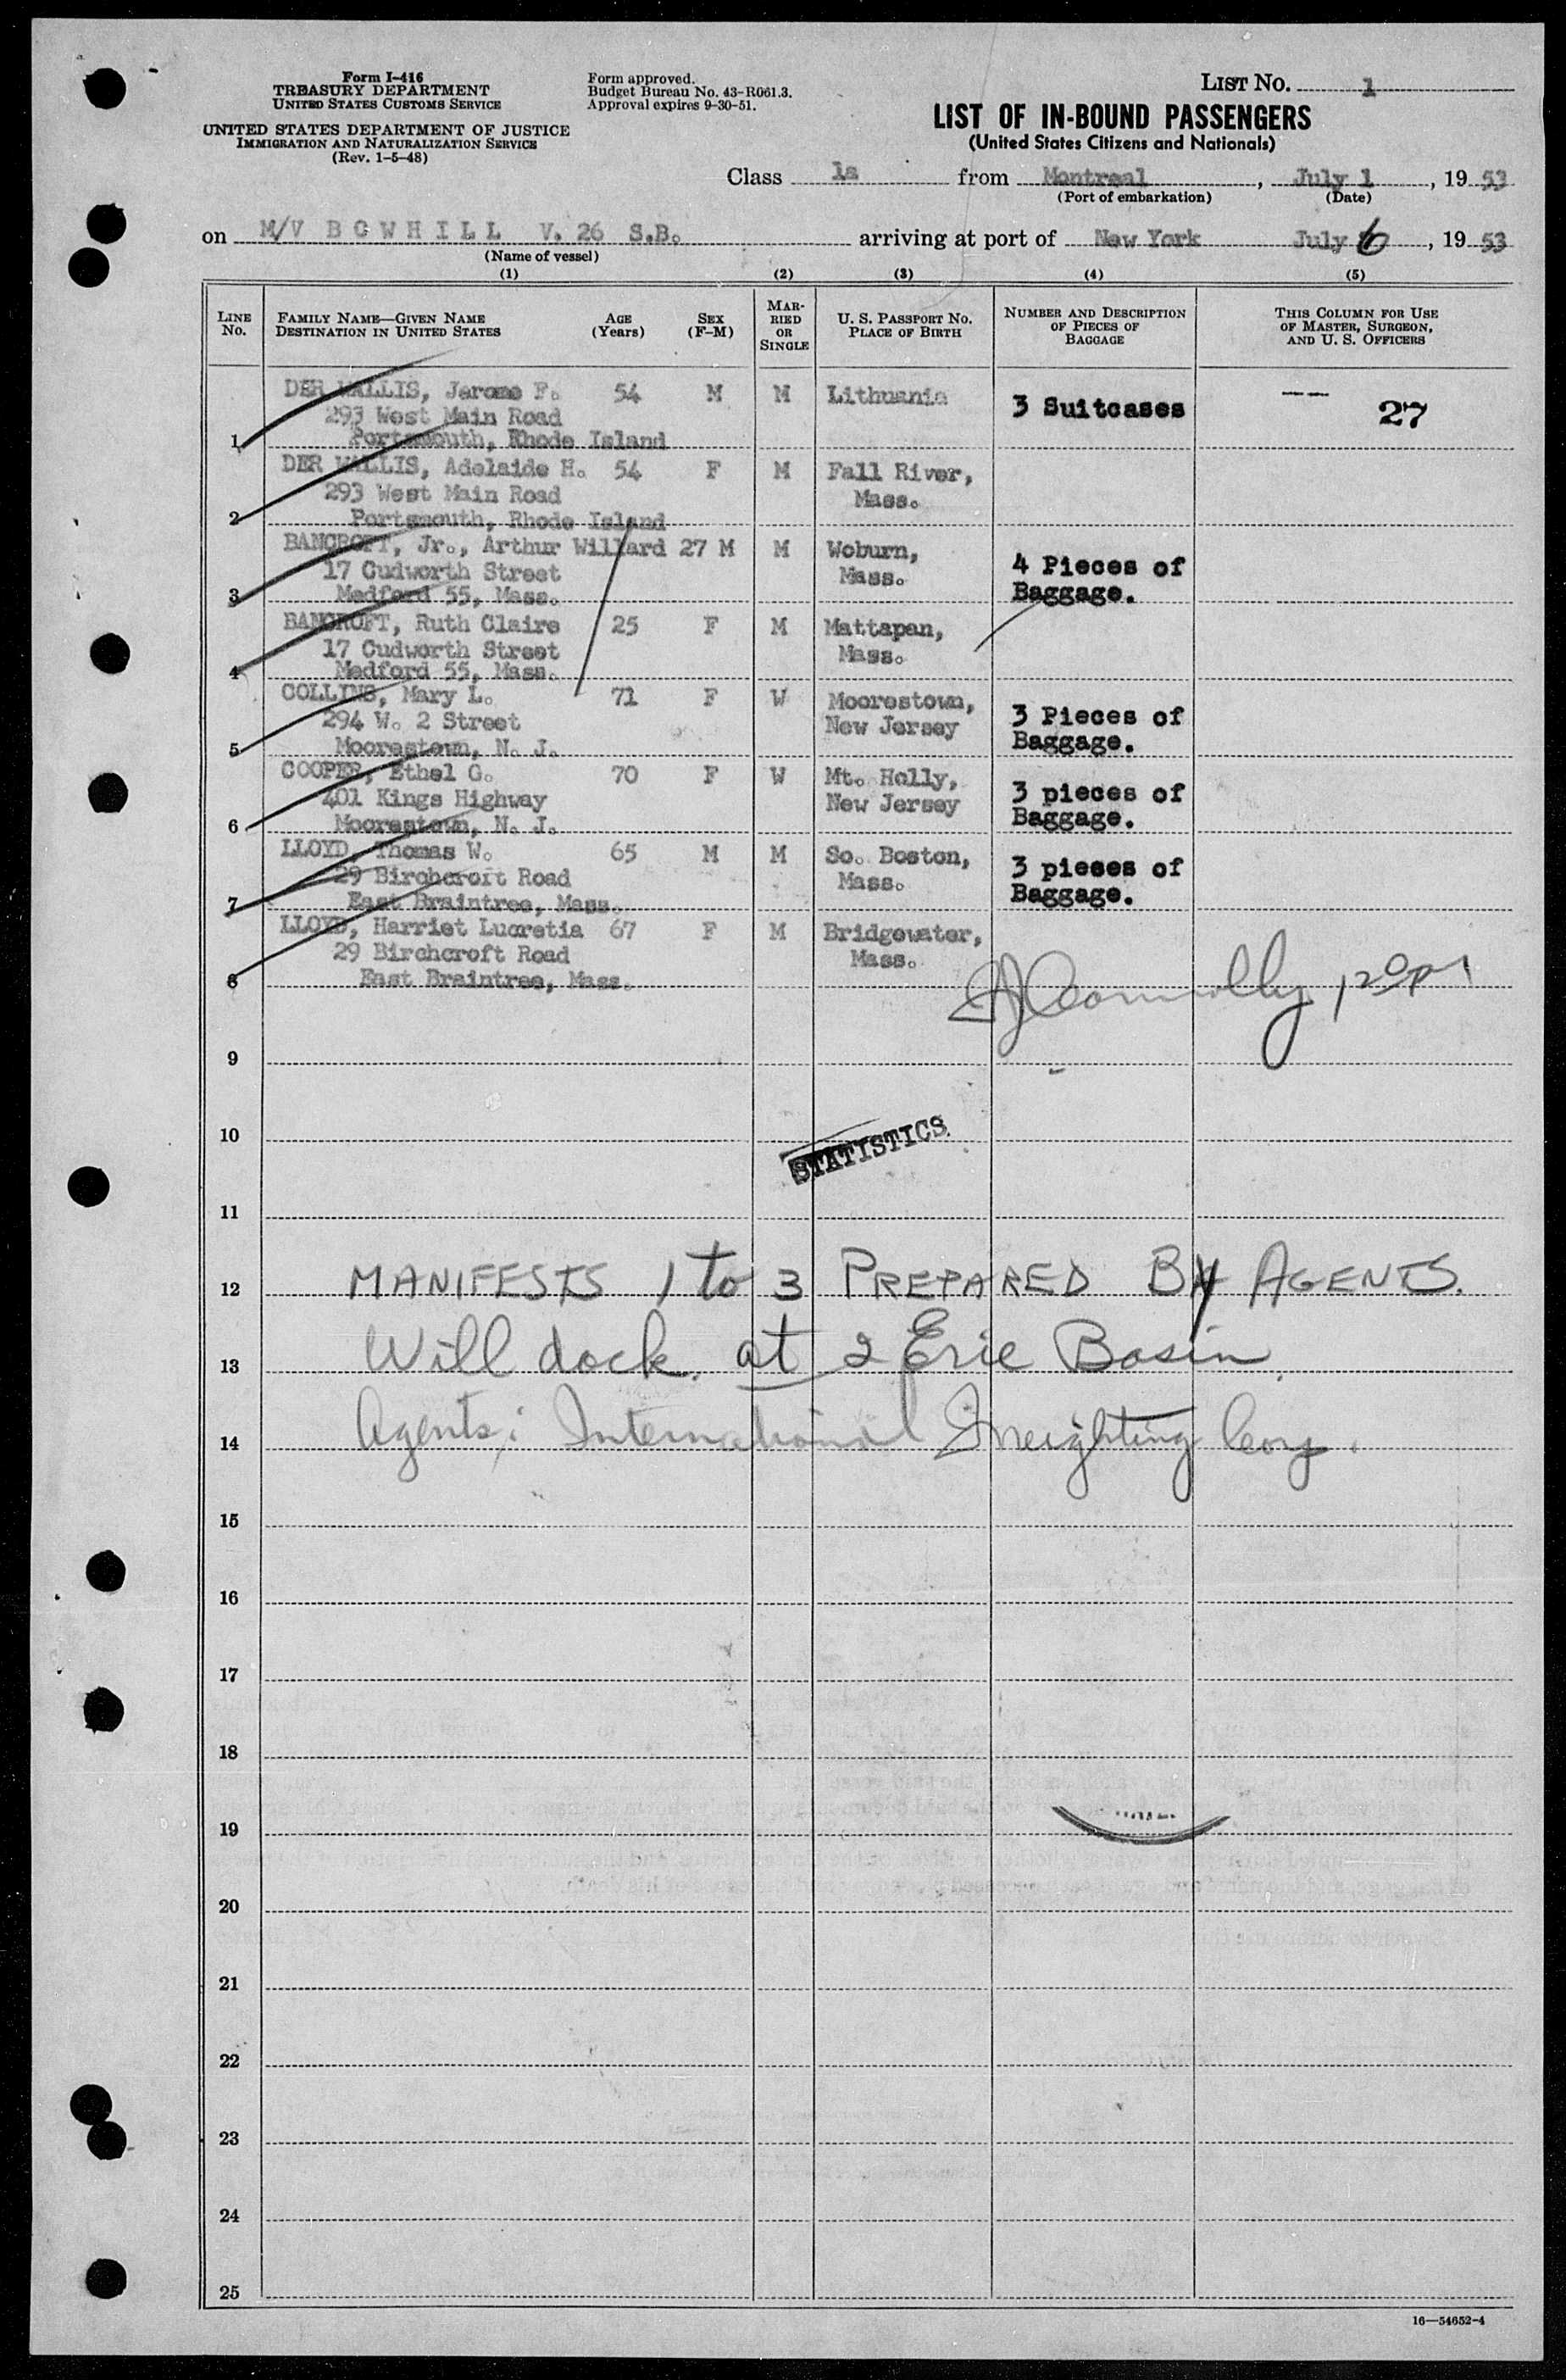 Form I-416
TREASURY DEPARTMENT
UNITED STATES CUSTOMS SERVICE
UNITED STATES DEPARTMENT OF JUSTICE
IMMIGRATION AND NATURALIZATION SERVICE
(Rev. 1-5-48)
Form approved.
Budget Bureau No. 43-R061.3.
Approval expires 9-30-51.
LIST NO. 1
LIST OF IN-BOUND PASSENGERS
(United States Citizens and Nationals)
Class 1a from Montreal, July 1, 1953
(Port of embarkation) (Date)
on M/V BOWHILL V. 26 S.B. arriving at port of New York July 6, 1953
(Name of vessel)
(1) (2) (3) (4) (5)
LINE No.
FAMILY NAME—GIVEN NAME
DESTINATION IN UNITED STATES
AGE (Years)
SEX (F-M)
MARRIED OR SINGLE
U. S. PASSPORT NO.
PLACE OF BIRTH
NUMBER AND DESCRIPTION OF PIECES OF BAGGAGE
THIS COLUMN FOR USE OF MASTER, SURGEON, AND U. S. OFFICERS
DER WALLIS, Jerome F. 54 M M Lithuania 3 Suitcases -- 27
293 West Main Road
1 Portsmouth, Rhode Island
DER WALLIS, Adelaide H. 54 F M Fall River,
293 West Main Road Mass.
2 Portsmouth, Rhode Island
BANCROFT, Jr., Arthur Willard 27 M M Woburn, 4 Pieces of
17 Cudworth Street Mass. Baggage.
3 Medford 55, Mass.
BANCROFT, Ruth Claire 25 F M Mattapan,
17 Cudworth Street Mass.
4 Medford 55, Mass.
COLLINS, Mary L. 71 F W Moorestown, 3 Pieces of
294 W. 2 Street New Jersey Baggage.
5 Moorestown, N. J.
COOPER, Ethel G. 70 F W Mt. Holly, 3 pieces of
401 Kings Highway New Jersey Baggage.
6 Moorestown, N. J.
LLOYD, Thomas W. 65 M M So. Boston, 3 pieses of
29 Birchcroft Road Mass. Baggage.
7 East Braintree, Mass.
LLOYD, Harriet Lucretia 67 F M Bridgewater,
29 Birchcroft Road Mass.
8 East Braintree, Mass.
Connolly
9
10
STATISTICS
11
12 MANIFESTS 1 to 3 PREPARED BY AGENTS.
13 Will dock at 2 Erie Basin
14 Agents: International Freighting Corp.
15
16
17
18
19
20
21
22
23
24
25
16—54652-4